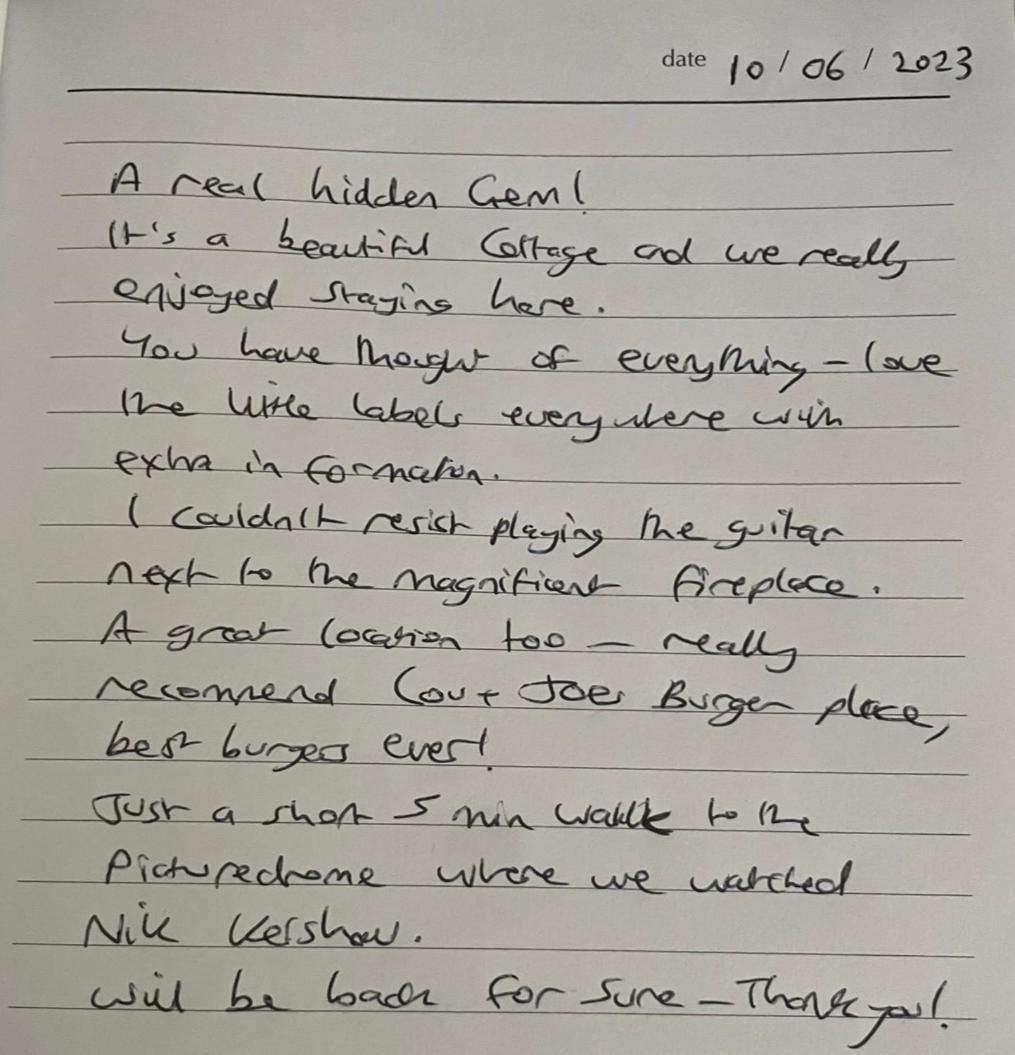 date 10 / 06 / 2023
A real hidden Gem!
It's a beautiful Cottage and we really
enjoyed staying here.
You have thought of everything – love
the little labels everywhere with
extra information.
I couldn't resist playing the guitar
next to the magnificent fireplace.
A great location too – really
recommend Cow + Joes Burger place,
best burgers ever!
Just a short 5 min walk to the
Picturedrome where we watched
Nik Kershaw.
will be back for sure – Thank you!